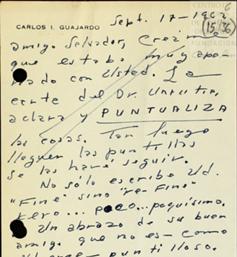 CARLOS I. GUAJARDO
15/36
Sept. 17-1962
amigo Salvador, Creíme
que estaba muy ape-
nado con Usted. La
carta del Dr. Urrutia,
aclara y PUNTUALIZA
las cosas. Tan luego
lleguen las puntillas
se las haré seguir.
No sólo escribe Ud.
"Fino" sino "re-Fino"
pero... poco... poquísimo.
Un abrazo de su buen
amigo que no es-como
puntilloso.